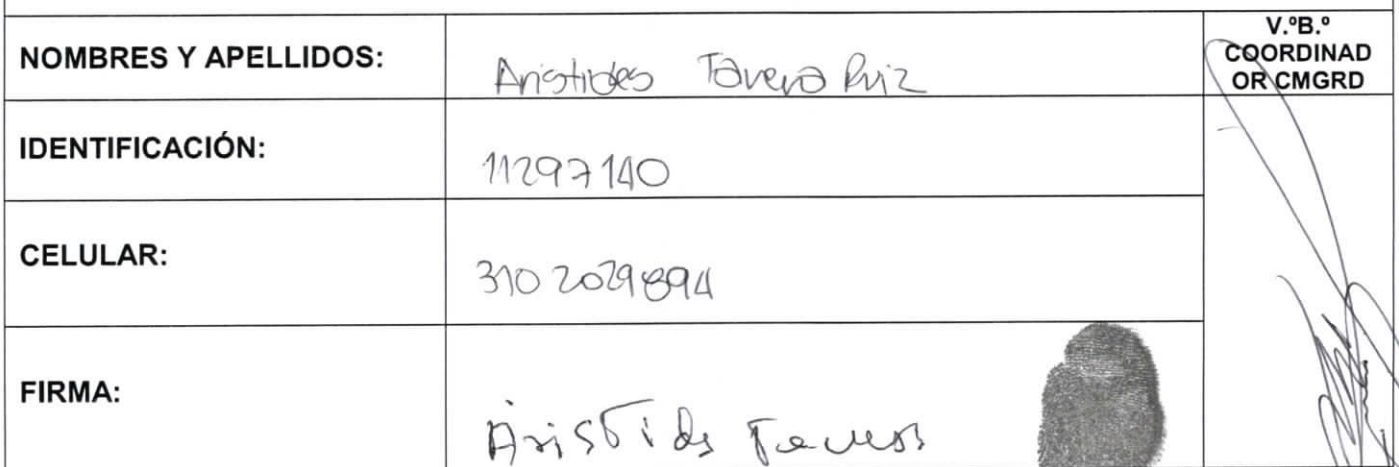 NOMBRES Y APELLIDOS: Aristides Tavera Ruiz
V.ºB.º
COORDINAD
OR CMGRD
IDENTIFICACIÓN: 11297140
CELULAR: 310 2029894
FIRMA: Aristides Tavera